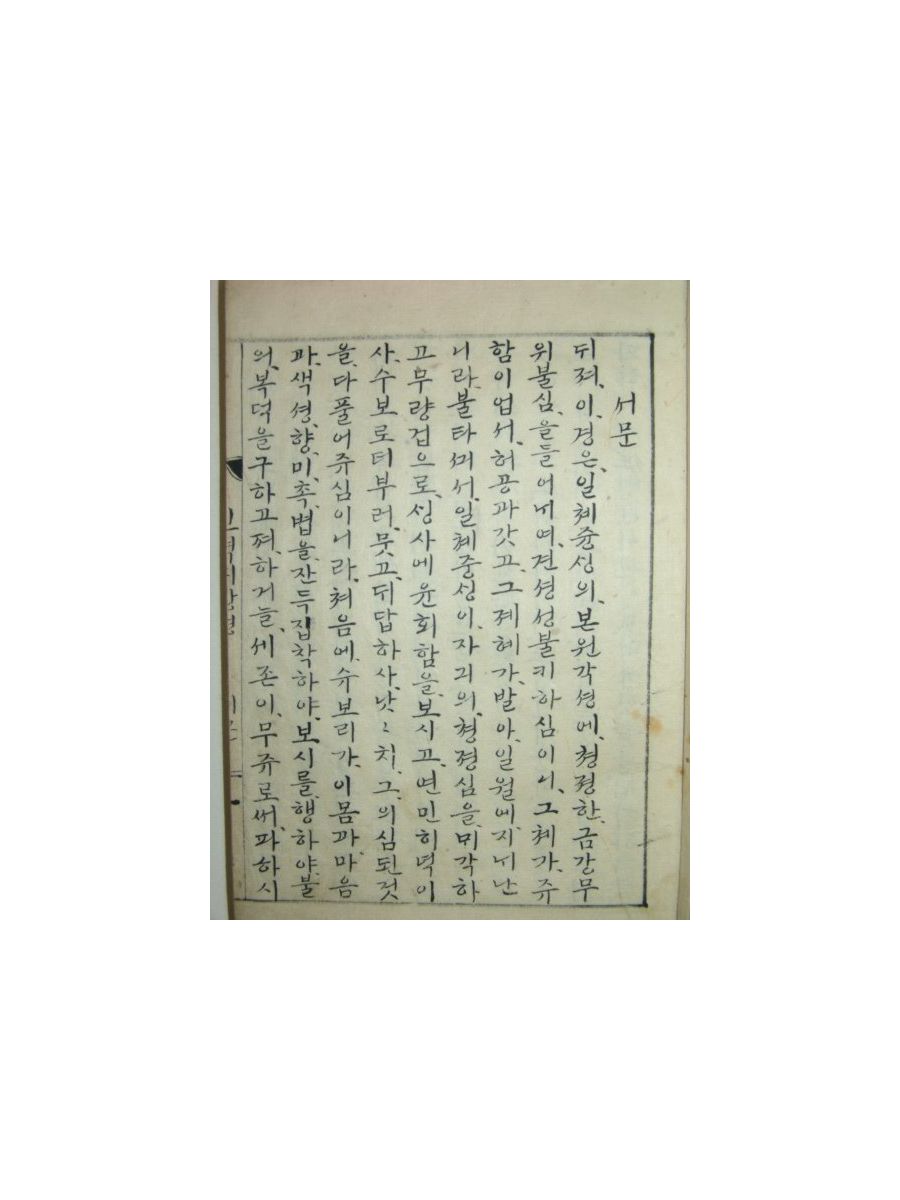 서문
뒤져、이、경은、일쳬즁성의、본원각셩에、쳥졍한、금강무
위불심、을들어내여、견셩성불키하심이니、그쳬가、쥬
함이업서、허공과갓고、그졔혜가、발아、일월에、지내난
니라、불타께서、일쳬중성이、자긔의、쳥졍심을、미각하
고무량겁으로、성사에윤회함을、보시고、연민히녁이
사、수보로터부러、뭇고、뒤답하사、낫〻치、그、의심된것
을、다풀어쥬심이니라、쳐음에、슈보리가、이몸과마음
과、색셩、향、미、촉、볍을、잔득집착하야、보시를、행하야、불
의、복덕을구하고져、하거늘、세존이、무쥬로써、파하시